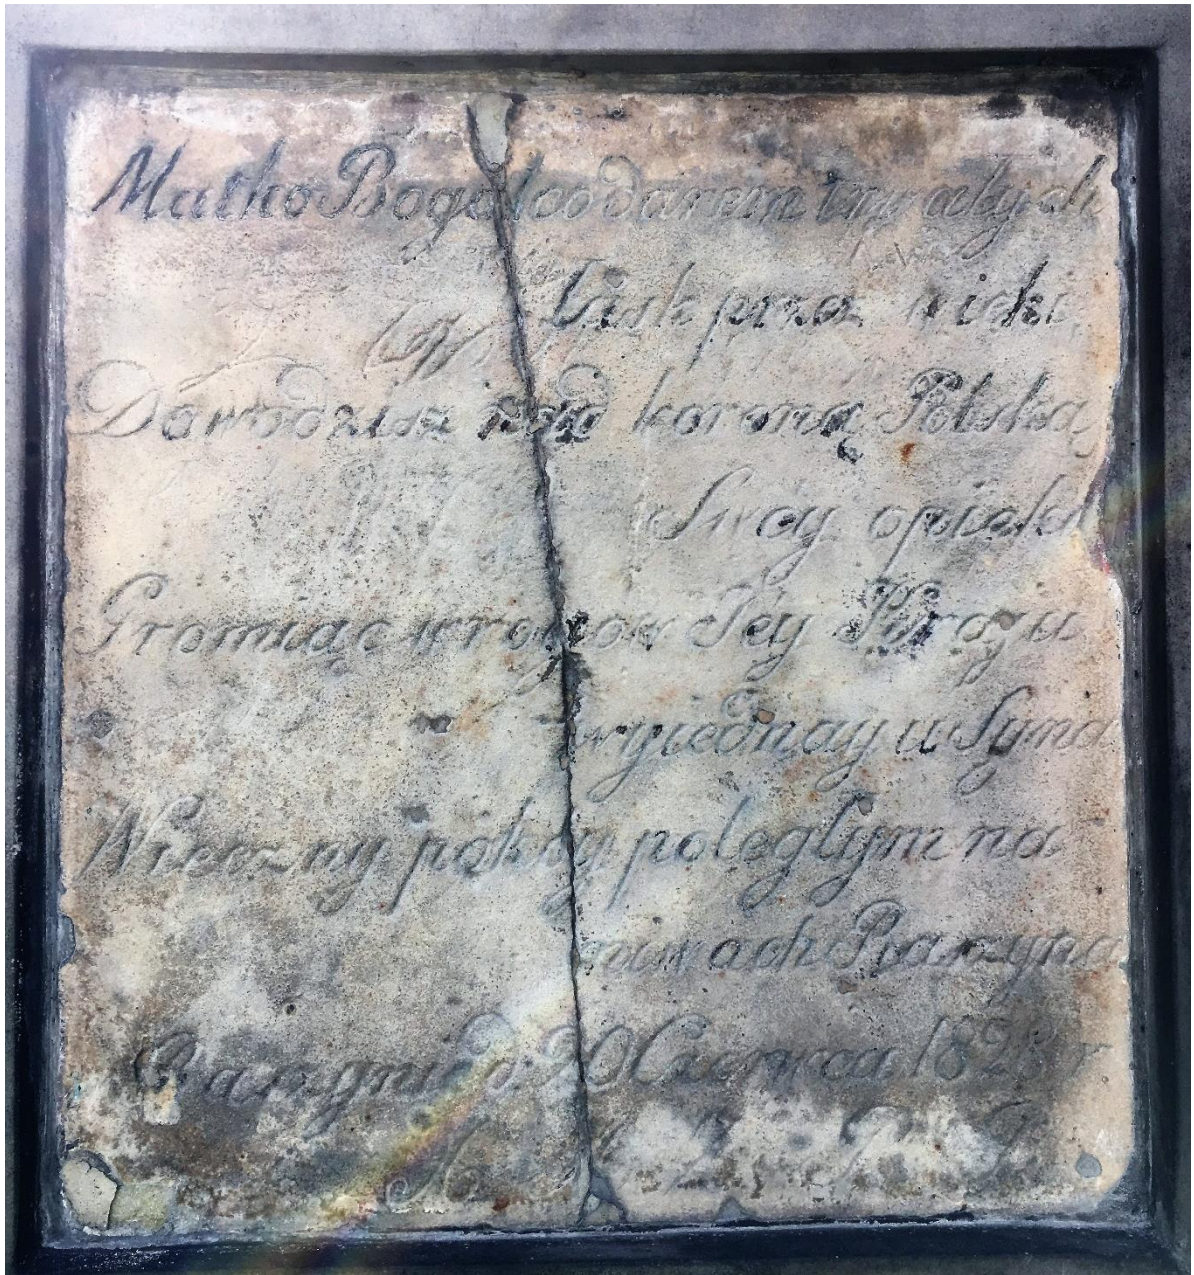 Matko Boga coo darem trwałych
łask przez wieki
Dowodzisz nad koroną Polską
Swey opieki
Gromiąc wrogow Jey Kraju
wyiednay u Syna
Wieczny pokoy poległym na
niwach Raszyna
Raszyn d 20 Czerwca 182 r